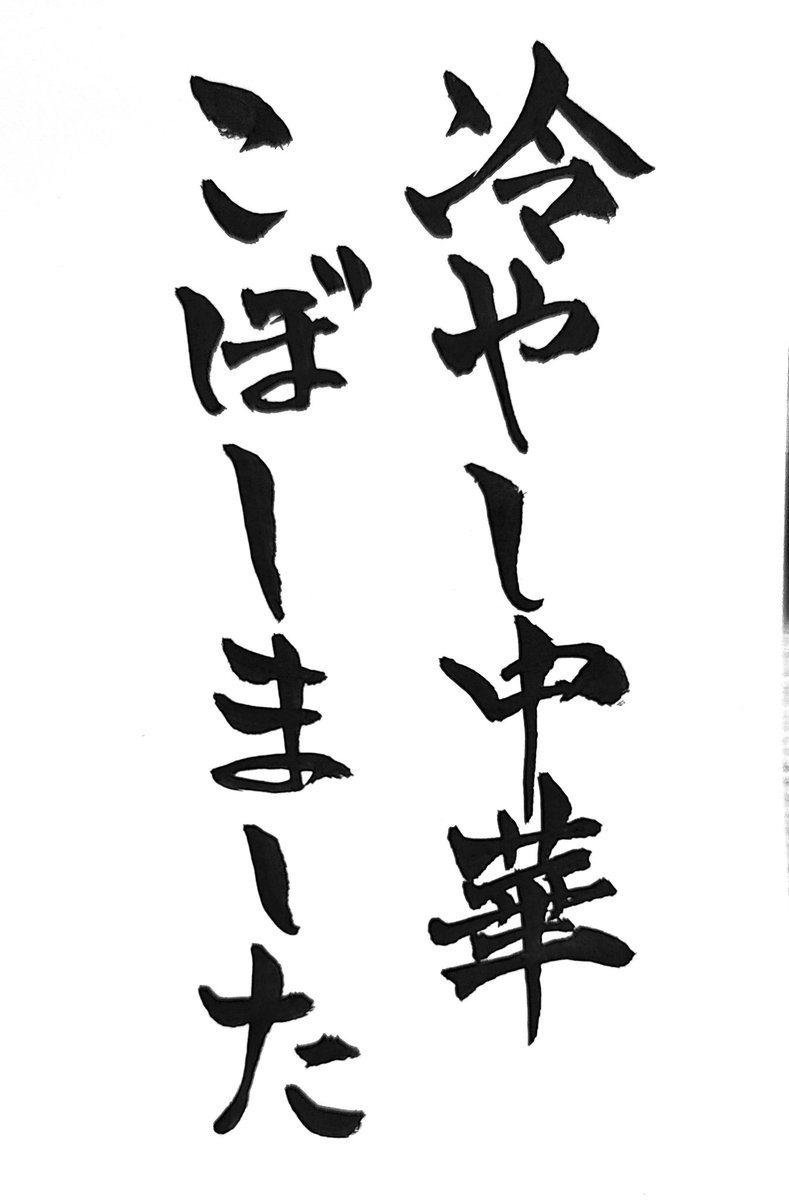 冷やし中華
こぼしました